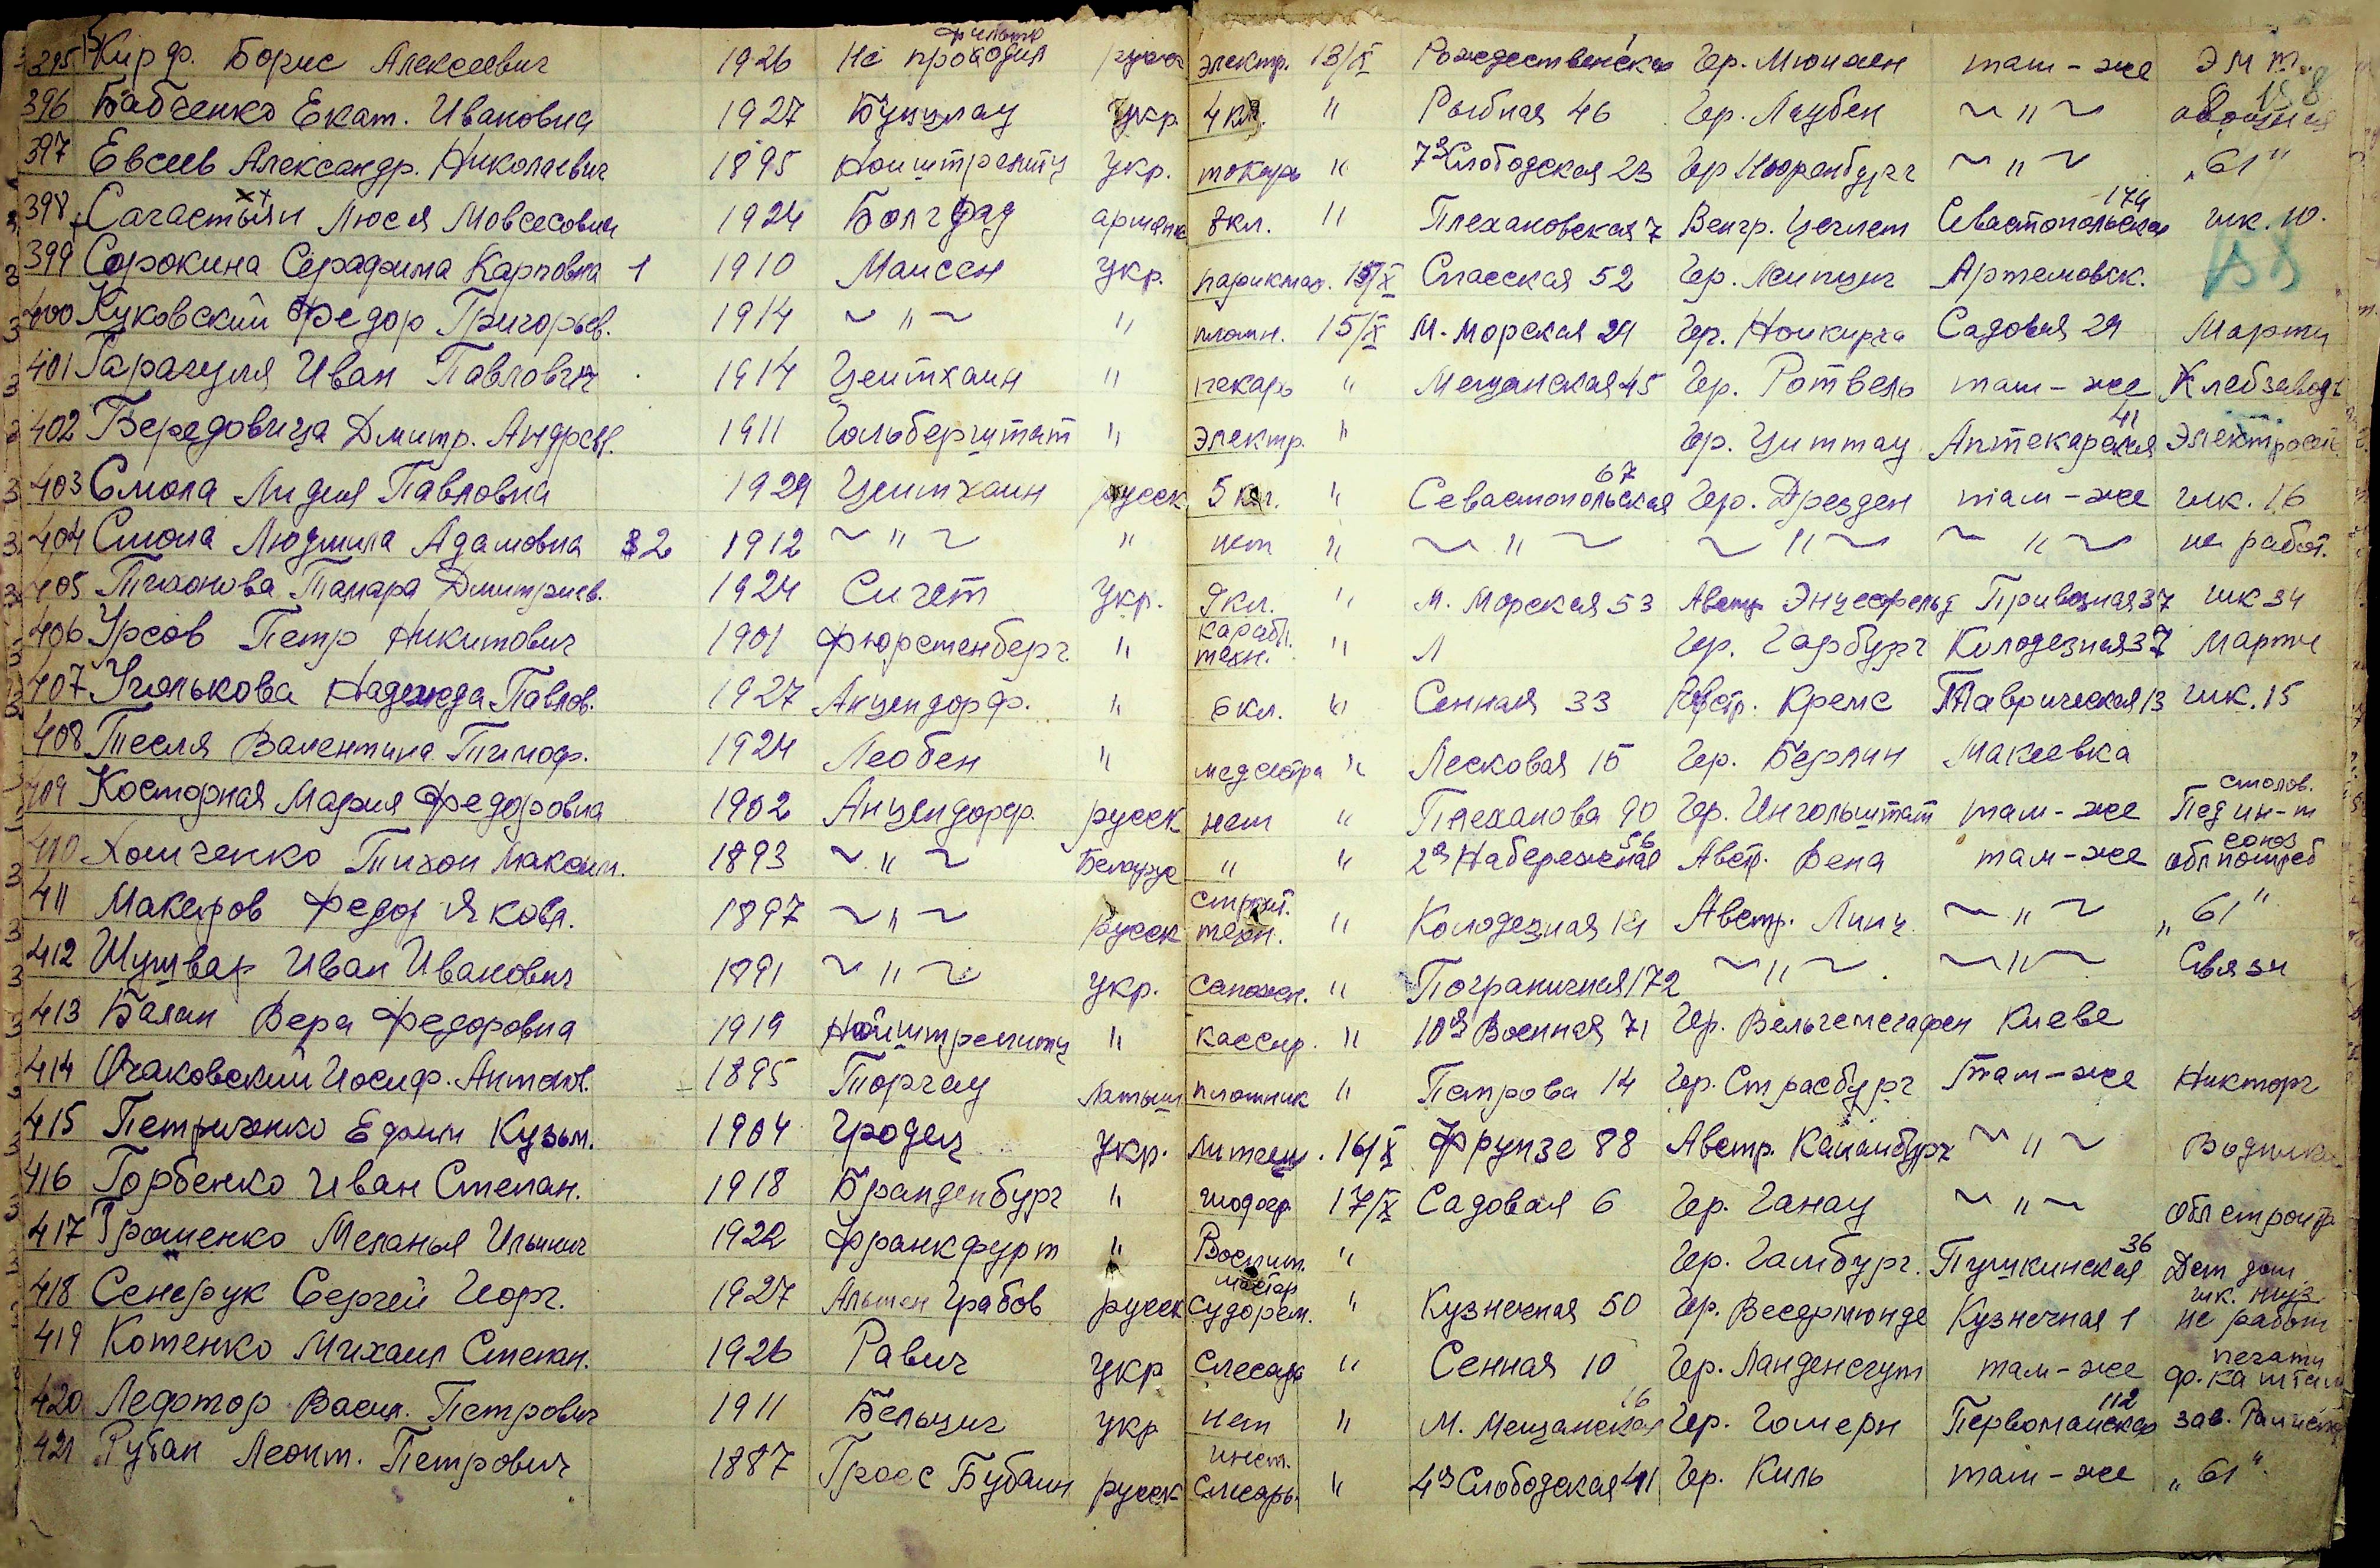 395 Кирф. Борис Алексеевич 1926 Не проходил фильтр русск электр. 13/X Рождественская Гер. Мюнхен там-же
396 Бабченко Екат. Ивановна 1927 Бунцлау укр. 4 кл. " Рыбная 46 Гер. Лаубен ~ " ~
397 Евсеев Александр. Николаевич 1895 Нойштрелитц укр. токарь " 7я Слободская 23 Гер Нюренбург ~ " ~ „61"
398 Люся Мовсесовна 1924 Болград армянка 8 кл. " Плехановская 7 Венгр. Цеглет Севастопольская 174 шк. 10.
399 Сорокина Серафима Карповна 1 1910 Майсен укр. парикмах. 15/X Спасская 52 Гер. Лейпциг Артемовск. 158
400 Куковский Федор Григорьев. 1914 ~ " ~ " плотн. 15/X М. Морская 24 Гер. Нойкирха Садовая 29 Марти
401 Гарагуля Иван Павлович 1914 Цейтхаин " пекарь " Мещанская 45 Гер. Ротвель там-же Хлебзаводъ
402 Бередовица Дмитр. Андреев. 1911 Гольберштат " электр. " Гер. Циттау Аптекарская 41 Электросеть
403 Смола Лидия Павловна 1929 Цейтхаин русск 5 кл. " Севастопольская 67 Гер. Дрезден там-же шк. 16
404 Смола Людмила Адамовна 2 1912 ~ " ~ " нет " ~ " ~ ~ " ~ ~ " ~ не работ.
405 Тихонова Тамара Дмитриев. 1924 Сигет укр. 9 кл. " М. Морская 53 Австр Энцесфельд Привозная 37 шк 34
406 Урсов Петр Никитович 1901 Фюрстенберг. " карабл. техн. " Л Гер. Гарбург Колодезная 37 Марти
407 Уголькова Надежда Павлов. 1927 Анцендорф. " 6 кл. " Сенная 33 Австр. Кремс Таврическая 13 шк. 15
408 Тесля Валентина Тимоф. 1924 Леобен " медсестра " Лесковая 15 Гер. Берлин Макеевка
409 Косторная Мария Федоровна 1902 Анцендорф. русск нет " Плеханова 90 Гер. Ингольштат там-же столов. Пед ин-т
410 Хомченко Тихон Максим. 1893 ~ " ~ Беларус " " 2я Набережная 56 Авст. Вена там-же облпотребсоюз
411 Макаров Федор Яковл. 1897 ~ " ~ русск строит. техн. " Колодезная 14 Австр. Линц ~ " ~ „61"
412 Шушвар Иван Иванович 1891 ~ " ~ укр. сапожн. " Пограничная 172 ~ " ~ ~ " ~ Связи
413 Балан Вера Федоровна 1919 Нойштрелитц " кассир. " 10я Военная 71 Гер. Вельгемсгафен Киеве
414 Очаковский Иосиф. Антонов. 1895 Торгау Латыш плотник " Петрова 14 Гер. Страсбург там-же Никторг
415 Петриченко Ефим Кузьм. 1904 Гродец укр. литейщ. 16/X Фрунзе 88 Австр. Капамбург ~ " ~
416 Горбенко Иван Степан. 1918 Бранденбург " шофер 17/X Садовая 6 Гер. Ганау ~ " ~
417 Меланья Ильинич 1922 Франкфурт " Воспит. " Гер. Гамбург. Пушкинская 36 Дет дом
418 Сенерук Сергей Георг. 1927 Альтен Грабов русск мастер судорем. " Кузнечная 50 Гер. Весермюнде Кузнечная 1 не работ
419 Котенко Михаил Степан. 1926 Равич укр слесарь " Сенная 10 Гер. Ланденсгут там-же
420 Лефтор Васил. Петрович 1911 Бельциг укр нет " М. Мещанская 16 Гер. Гомерн Первомайская 112
421 Рубан Леонт. Петрович 1887 Гросс Бубаин русск инст. слесарь " 4я Слободская 41 Гер. Киль там-же „61"